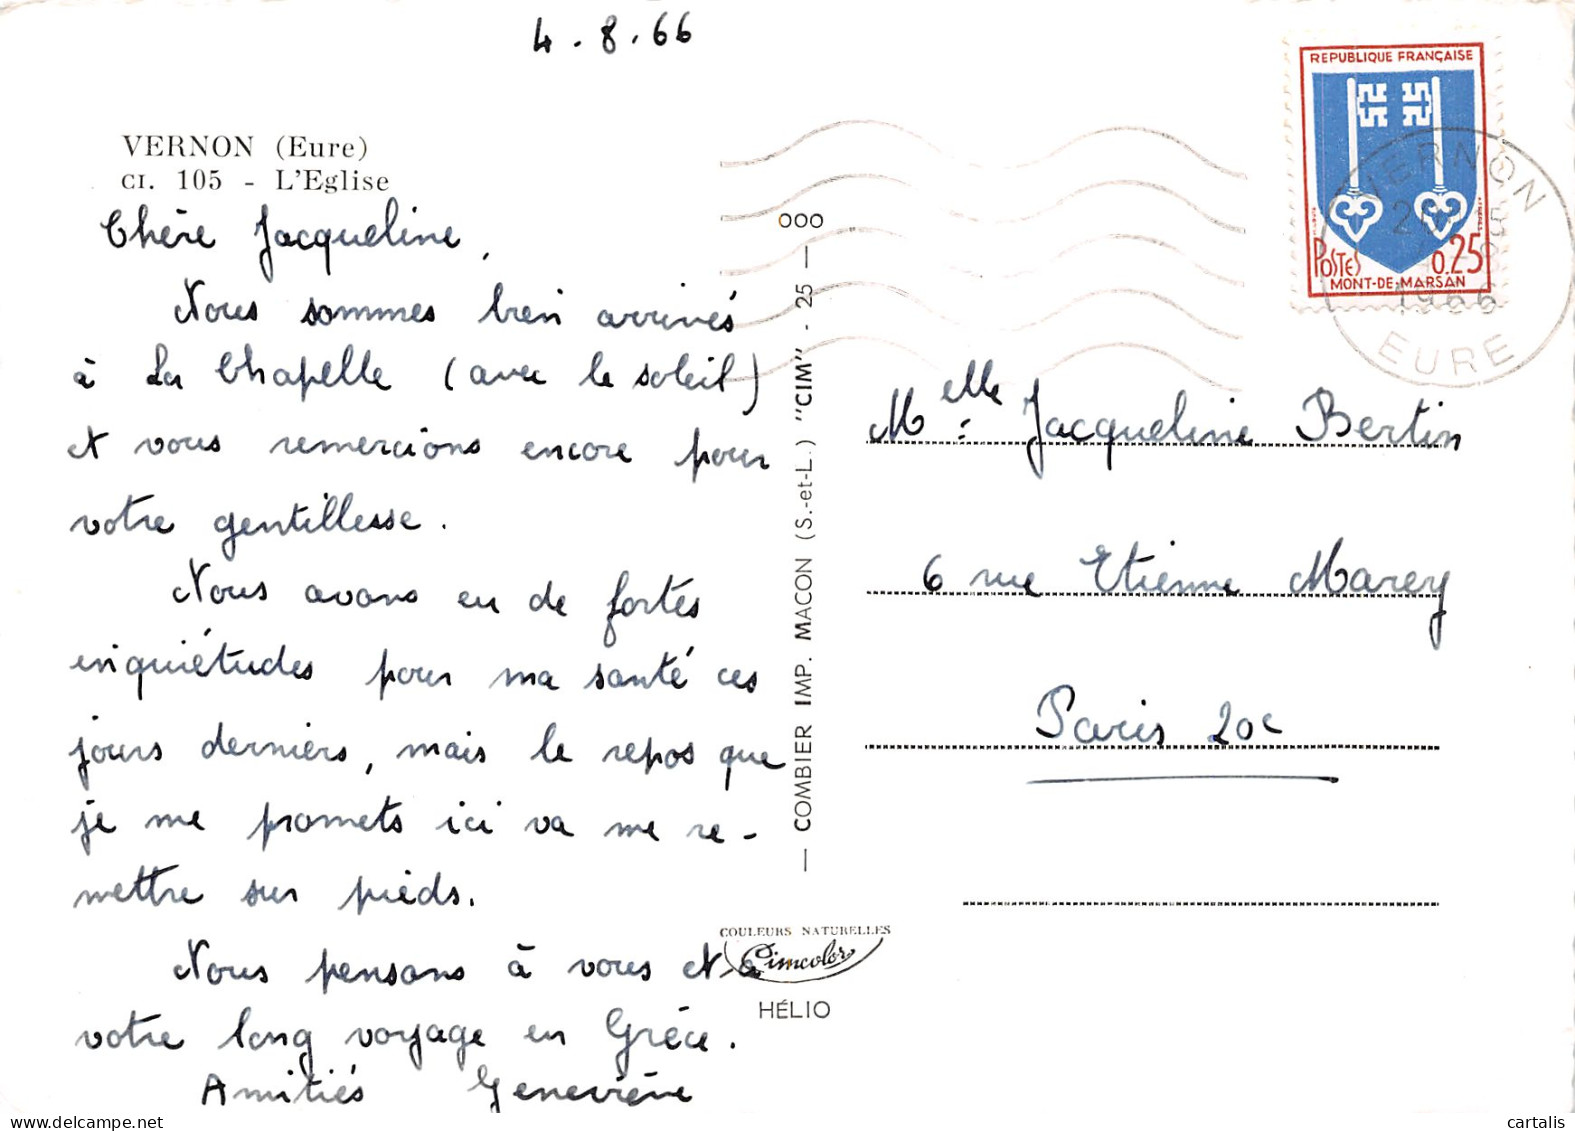 4.8.66
VERNON (Eure)
CI. 105 - L'Eglise
Chère Jacqueline,
Nous sommes bien arrivés
à La Chapelle (avec le soleil)
et vous remercions encore pour
votre gentillesse.
Nous avons eu de fortes
inquiétudes pour ma santé ces
jours derniers, mais le repos que
je me promets ici va me re-
mettre sur pieds.
Nous pensons à vous et à
votre long voyage en Grèce.
Amitiés Geneviève
— COMBIER IMP. MACON (S.-et-L.) "CIM" - 25 — 000
COULEURS NATURELLES
Cimcolor
HÉLIO
REPUBLIQUE FRANÇAISE
POSTES 0.25
MONT-DE-MARSAN
VERNON
1966
EURE
Melle: Jacqueline Bertin
6 rue Etienne Marey
Paris 20e
delcampe.net
cartalis